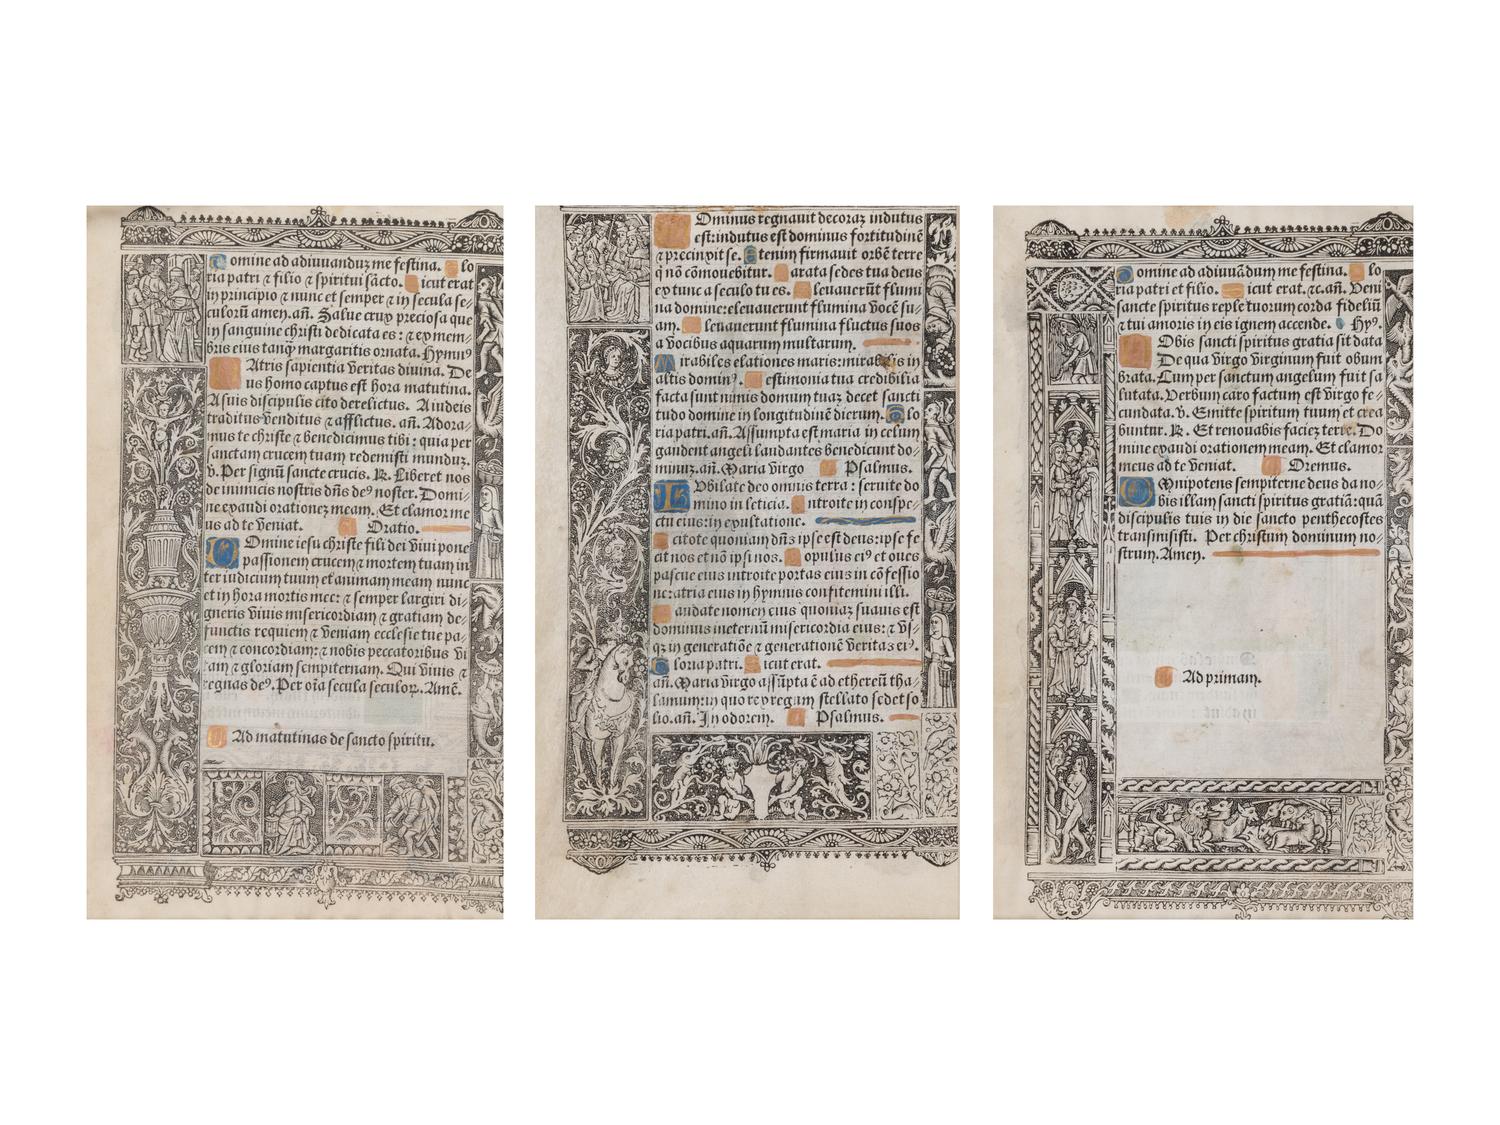 Domine ad adiuuanduz me festina. Glo
ria patri ⁊ filio ⁊ spiritui sācto. Sicut erat
in principio ⁊ nunc et semper ⁊ in secula se⸗
culorū amen. añ. Salue crux preciosa que
in sanguine christi dedicata es: ⁊ ex mem⸗
bris eius tanqȝ margaritis ornata. Hymnꝰ
PAtris sapientia veritas diuina. De
us homo captus est hora matutina.
A suis discipulis cito derelictus. A iudeis
traditus venditus ⁊ afflictus. añ. Adora⸗
mus te christe ⁊ benedicimus tibi: quia per
sanctam crucem tuam redemisti munduz.
v. Per signū sancte crucis. ℟. Liberet nos
de inimicis nostris dñs deꝰ noster. Domi⸗
ne exaudi orationez meam. Et clamor me
us ad te veniat. Oratio.
DOmine iesu christe fili dei viui pone
passionem crucem ⁊ mortem tuam in
ter iudicium tuum et animam meam nunc
et in hora mortis mee: ⁊ semper largiri di⸗
gneris viuis misericordiam ⁊ gratiam de⸗
functis requiem ⁊ veniam ecclesie tue pa⸗
cem ⁊ concordiam: ⁊ nobis peccatoribus vi
tam ⁊ gloriam sempiternam. Qui viuis ⁊
regnas deꝰ. Per oīa secula seculoꝝ. Amē.
Ad matutinas de sancto spiritu.
DOminus regnauit decoraȝ indutus
est: indutus est dominus fortitudinē
⁊ precinxit se. Etenim firmauit orbē terre
q̄ nō cōmouebitur. Parata sedes tua deus
ex tunc a seculo tu es. Eleuauerūt flumi
na domine: eleuauerunt flumina vocē su⸗
am. Eleuauerunt flumina fluctus suos
a vocibus aquarum multarum.
Mirabiles elationes maris: mirabilis in
altis dominꝰ. Testimonia tua credibilia
facta sunt nimis domum tuaȝ decet sancti
tudo domine in longitudinē dierum. Glo
ria patri. añ. Assumpta est maria in celum
gaudent angeli laudantes benedicunt do⸗
minuz. añ. Maria virgo Psalmus.
IUbilate deo omnis terra: seruite do
mino in leticia. Introite in conspe⸗
ctu eius: in exultatione.
Scitote quoniaꝫ dñs ipse est deus: ipse fe
cit nos et nō ipsi nos. Populus eiꝰ et oues
pascue eius introite portas eius in cōfessio
ne: atria eius in hymnis confitemini illi.
Laudate nomen eius quoniaȝ suauis est
dominus ineternū misericordia eius: ⁊ vs⸗
qȝ in generatiōe ⁊ generationē veritas eiꝰ.
Gloria patri. Sicut erat.
añ. Maria virgo assūpta ē ad ethereū tha⸗
lamum: in quo rex regum stellato sedet so
lio. añ. In odorem. Psalmus.
Domine ad adiuuādum me festina. Glo
ria patri et filio. Sicut erat. ⁊c. añ. Veni
sancte spiritus reple tuorum corda fideliū
⁊ tui amoris in eis ignem accende. Hyꝰ.
NObis sancti spiritus gratia sit data
De qua virgo virginum fuit obum
brata. Cum per sanctum angelum fuit sa
lutata. Verbum caro factum est virgo fe⸗
cundata. v. Emitte spiritum tuum et crea
buntur. ℟. Et renouabis faciez terre. Do
mine exaudi orationem meam. Et clamor
meus ad te veniat. Oremus.
OMnipotens sempiterne deus da no⸗
bis illam sancti spiritus gratiā: quā
discipulis tuis in die sancto penthecostes
transmisisti. Per christum dominum no⸗
strum. Amen.
Ad primam.